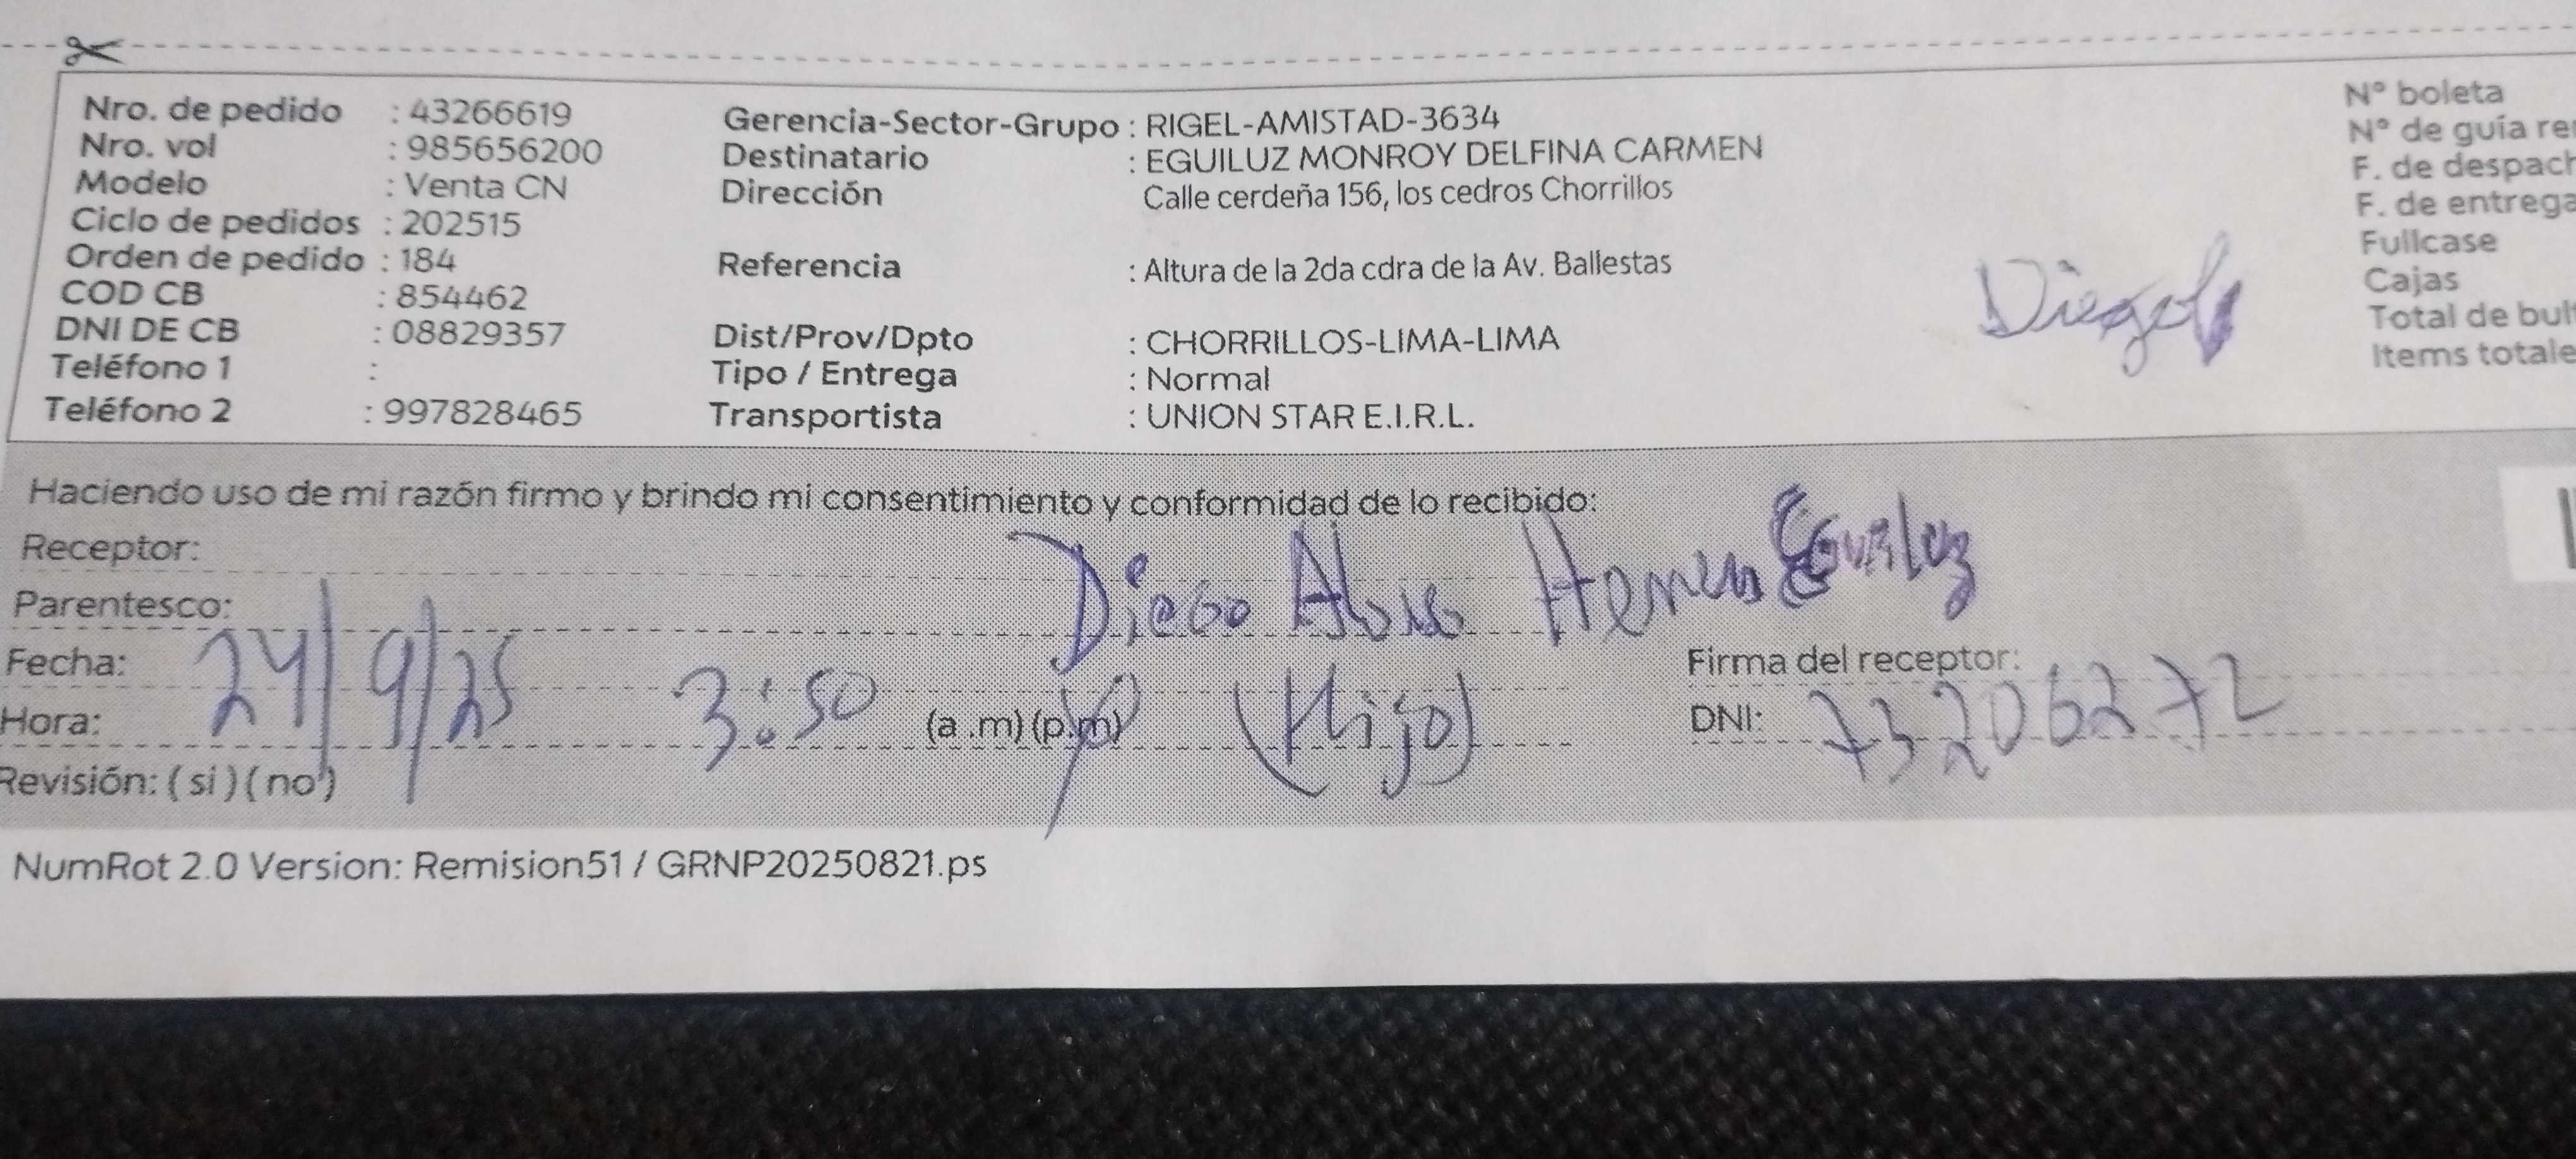 Nro. de pedido : 43266619
Nro. vol : 985656200
Modelo : Venta CN
Ciclo de pedidos : 202515
Orden de pedido : 184
COD CB : 854462
DNI DE CB : 08829357
Teléfono 1 :
Teléfono 2 : 997828465
Gerencia-Sector-Grupo : RIGEL-AMISTAD-3634
Destinatario : EGUILUZ MONROY DELFINA CARMEN
Dirección Calle cerdeña 156, los cedros Chorrillos
Referencia : Altura de la 2da cdra de la Av. Ballestas
Dist/Prov/Dpto : CHORRILLOS-LIMA-LIMA
Tipo / Entrega : Normal
Transportista : UNION STAR E.I.R.L.
N° boleta
N° de guía re
F. de despach
F. de entrega
Fullcase
Cajas
Total de bul
Items totale
Haciendo uso de mi razón firmo y brindo mi consentimiento y conformidad de lo recibido:
Receptor: Diego Eguiluz
Parentesco:
Fecha: 24/9/25
Hora: 3:50 (a .m) (p.m) (Hijo)
Firma del receptor:
DNI: 73206272
Revisión: ( si ) ( no )
NumRot 2.0 Version: Remision51 / GRNP20250821.ps